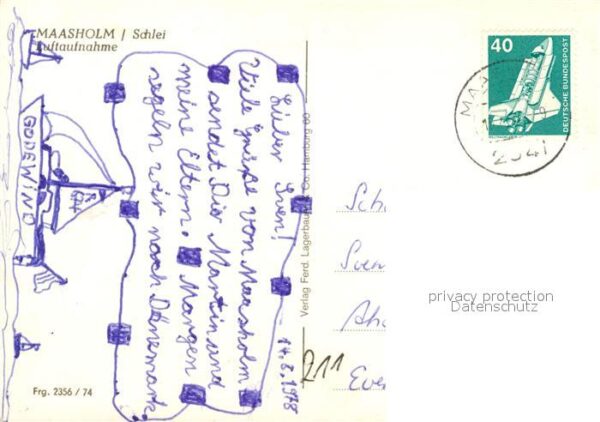 MAASHOLM / Schlei
Luftaufnahme
GODEWIND
Lieber Sven!
Viele Grüße von Maasholm
sendet Dir Martin und
meine Eltern. Morgen
segeln wir nach Dänemark.
14.8.1978
211
Verlag Ferd. Lagerbau Co. Hamburg 60
Frg. 2356 / 74
40
DEUTSCHE BUNDESPOST
MAAS
2341
Sch
Sven
Ah
Ever
privacy protection
Datenschutz